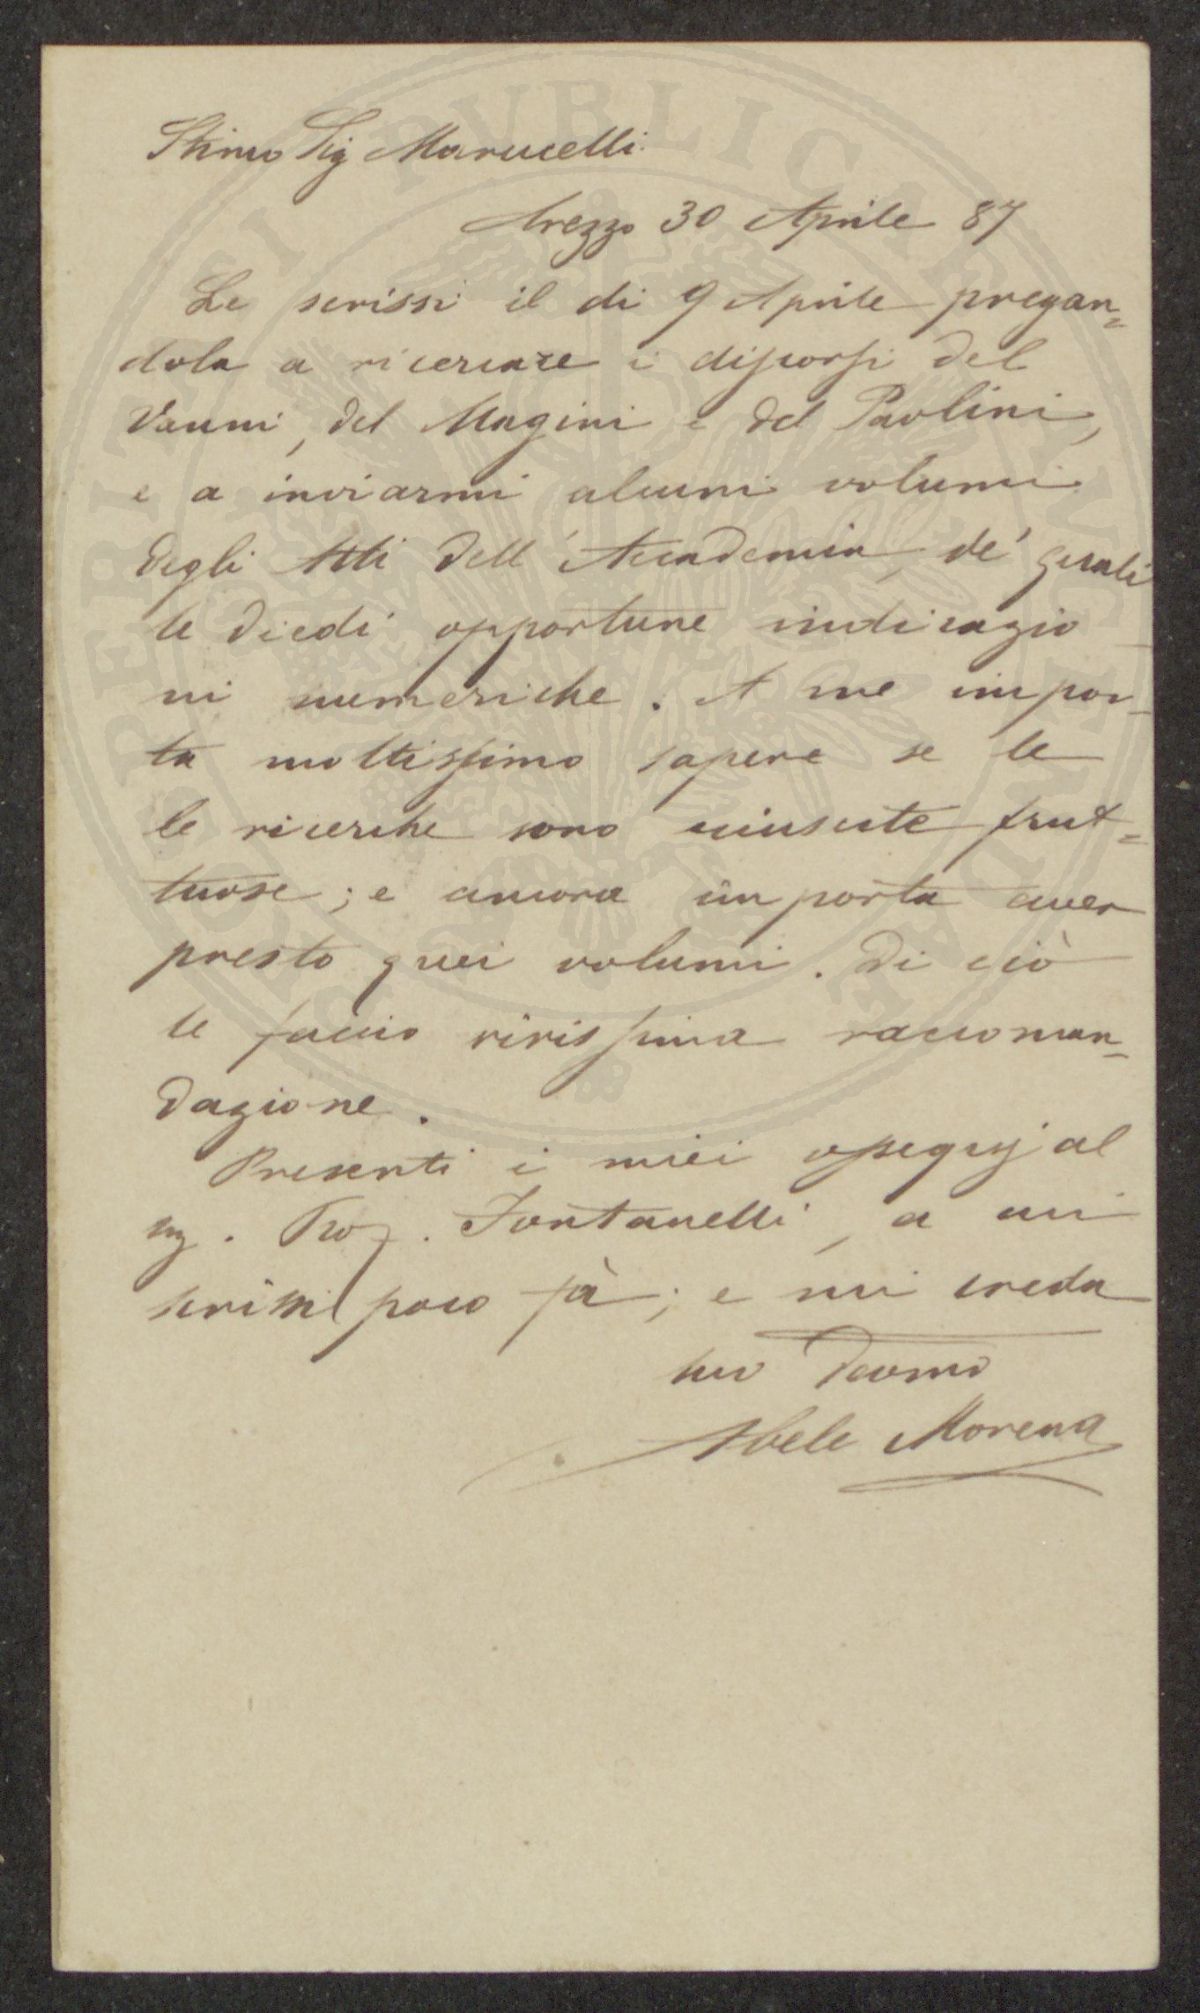 Stimo Sig Marucelli.
Arezzo 30 Aprile 87
Le scrissi il di 9 Aprile pregan=
dola a ricercare i discorsi del
Vanni, del Magini e del Paolini,
e a inviarmi alcuni volumi
degli Atti dell'Accademia, de' quali
le diedi opportune indicazio
ni numeriche. A me impor_
ta moltissimo sapere se le
le ricerche sono riuscite frut=
tuose; e ancora importa aver
presto quei volumi. Di ciò
le faccio vivissima raccoman=
dazione.
Presenti i miei ossequj al
sig. Prof. Fontanelli, a cui
scrissi poco fà; e mi creda
suo Devomo
Abele Morena